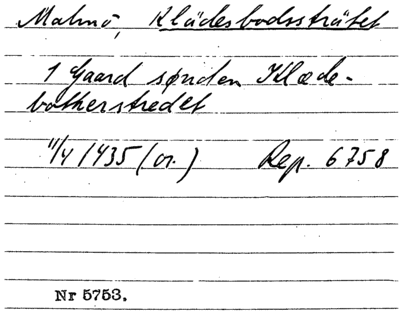 Malmö, Klädesbodssträtet
1 Gaard sønden Klæde-
botherstredet
11/4 1435 (or.) Rep. 6758
Nr 5753.